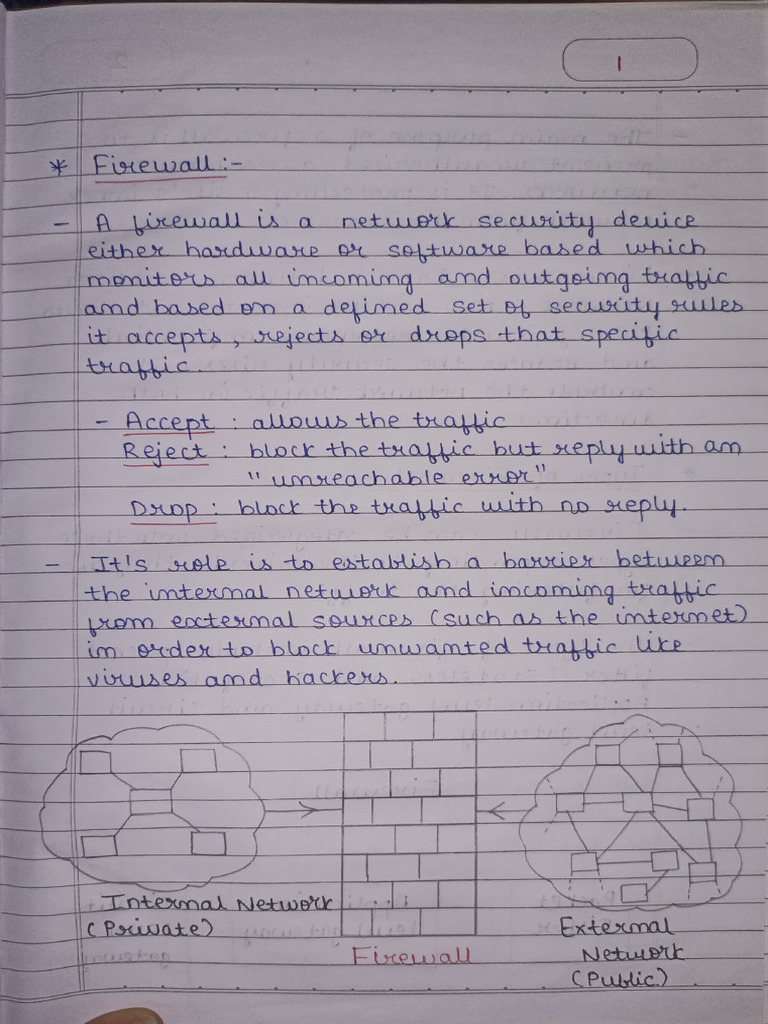 1
* Firewall :-
- A firewall is a network security device
either hardware or software based which
monitors all incoming and outgoing traffic
and based on a defined set of security rules
it accepts, rejects or drops that specific
traffic.
- Accept : allows the traffic
Reject : block the traffic but reply with an
"unreachable error"
Drop : block the traffic with no reply.
- It's role is to establish a barrier between
the internal network and incoming traffic
from external sources (such as the internet)
in order to block unwanted traffic like
viruses and hackers.
Internal Network
(Private)
Firewall
External
Network
(Public)